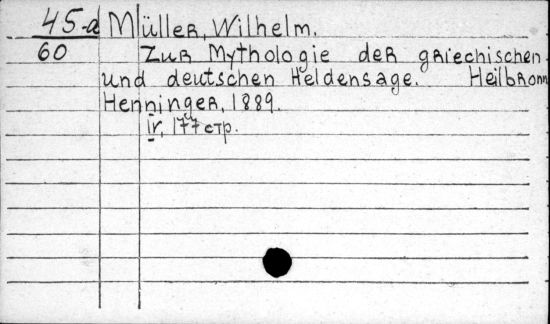 45-d Müller, Wilhelm.
60 Zur Mythologie der griechischen
und deutschen Heldensage. Heilbronn
Henninger, 1889.
IV, 177 стр.